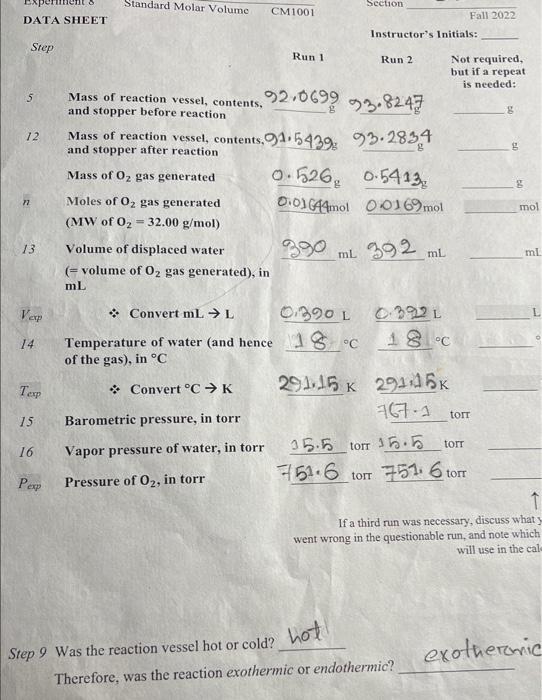 Experiment 8 Standard Molar Volume CM1001 Section
DATA SHEET Fall 2022
Instructor's Initials:
Step Run 1 Run 2 Not required, but if a repeat is needed:
5 Mass of reaction vessel, contents, and stopper before reaction 92.0699 g 93.8247 g g
12 Mass of reaction vessel, contents, and stopper after reaction 91.5439 g 93.2834 g g
Mass of O₂ gas generated 0.526 g 0.5413 g g
n Moles of O₂ gas generated 0.01644 mol 0.0169 mol mol
(MW of O₂ = 32.00 g/mol)
13 Volume of displaced water 390 mL 392 mL mL
(= volume of O₂ gas generated), in
mL
Vexp ❖ Convert mL → L 0.390 L 0.392 L L
14 Temperature of water (and hence 18 °C 18 °C °
of the gas), in °C
Texp ❖ Convert °C → K 291.15 K 291.15 K
15 Barometric pressure, in torr 767.1 torr
16 Vapor pressure of water, in torr 15.5 torr 15.5 torr
Pexp Pressure of O₂, in torr 751.6 torr 751.6 torr
↑
If a third run was necessary, discuss what y
went wrong in the questionable run, and note which
will use in the cal
Step 9 Was the reaction vessel hot or cold? hot
Therefore, was the reaction exothermic or endothermic? exothermic